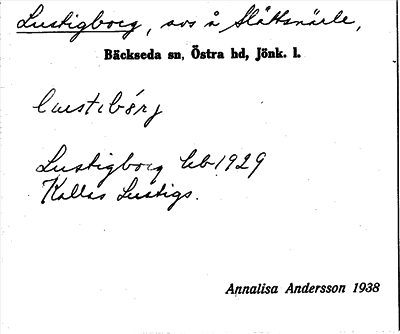 Lustigborg, avs å Slättsnärle,
Bäckseda sn, Östra hd, Jönk. l.
Lustigborg hb 1929
Kallas Lustigs.
Annalisa Andersson 1938